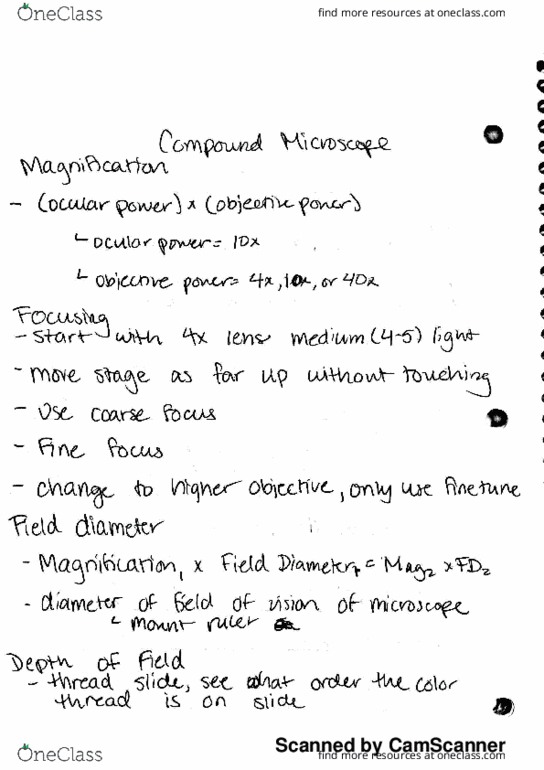 OneClass
find more resources at oneclass.com
Compound Microscope
Magnification
- (ocular power) x (objective power)
└ ocular power = 10x
└ objective power = 4x, 10x, or 40x
Focusing
- Start with 4x lens medium (4-5) light
- move stage as far up without touching
- Use coarse focus
- Fine focus
- change to higher objective, only use finetune
Field diameter
- Magnification₁ x Field Diameter₁ = Mag₂ x FD₂
- diameter of field of vision of microscope
└ mount ruler
Depth of Field
- thread slide, see what order the color
thread is on slide
Scanned by CamScanner
OneClass
find more resources at oneclass.com